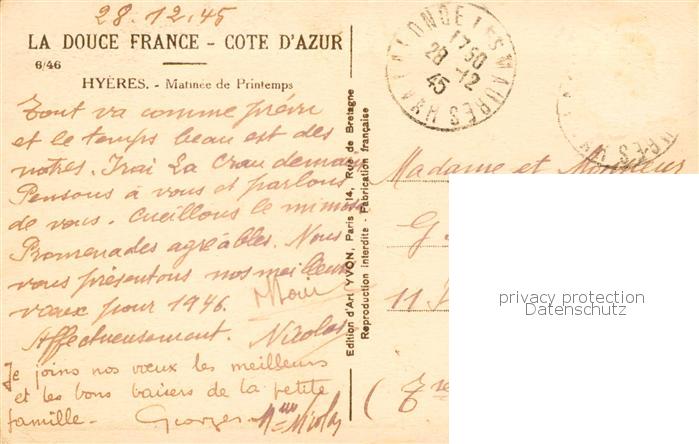 28.12.45
LA DOUCE FRANCE - COTE D'AZUR
6/46
HYÈRES. - Matinée de Printemps
Tout va comme prévu
et le temps beau est des
notres. Irai La Crau demain
Pensons à vous et parlons
de vous. Cueillons le mimosa
Promenades agréables. Nous
vous présentons nos meilleurs
vœux pour 1946.
Affectueusement. Nicolas
Je joins nos vœux les meilleurs
et les bons baisers de la petite
famille. Georges Nicolas
Edition d'Art YVON, Paris - 14, Rue de Bretagne
Reproduction Interdite - Fabrication française
LA LONDE LES MAURES VAR
17 30
28 -12
45
URES
Madame et Monsieur
G.
11
(
privacy protection
Datenschutz